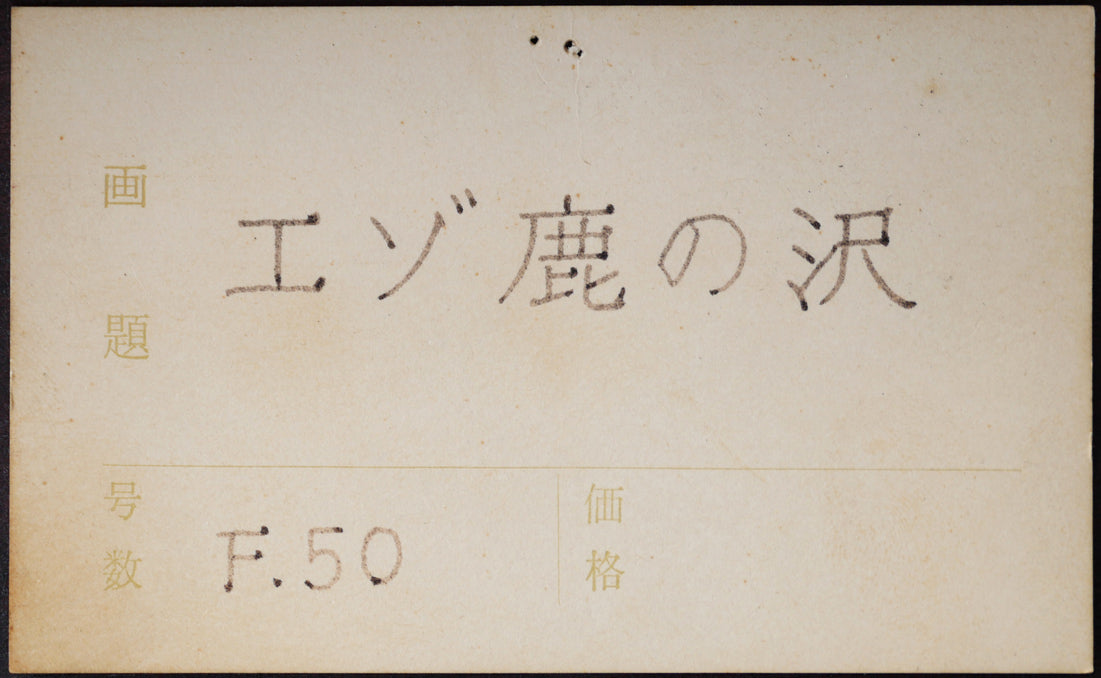 画題 エゾ鹿の沢
号数 F.50 価格